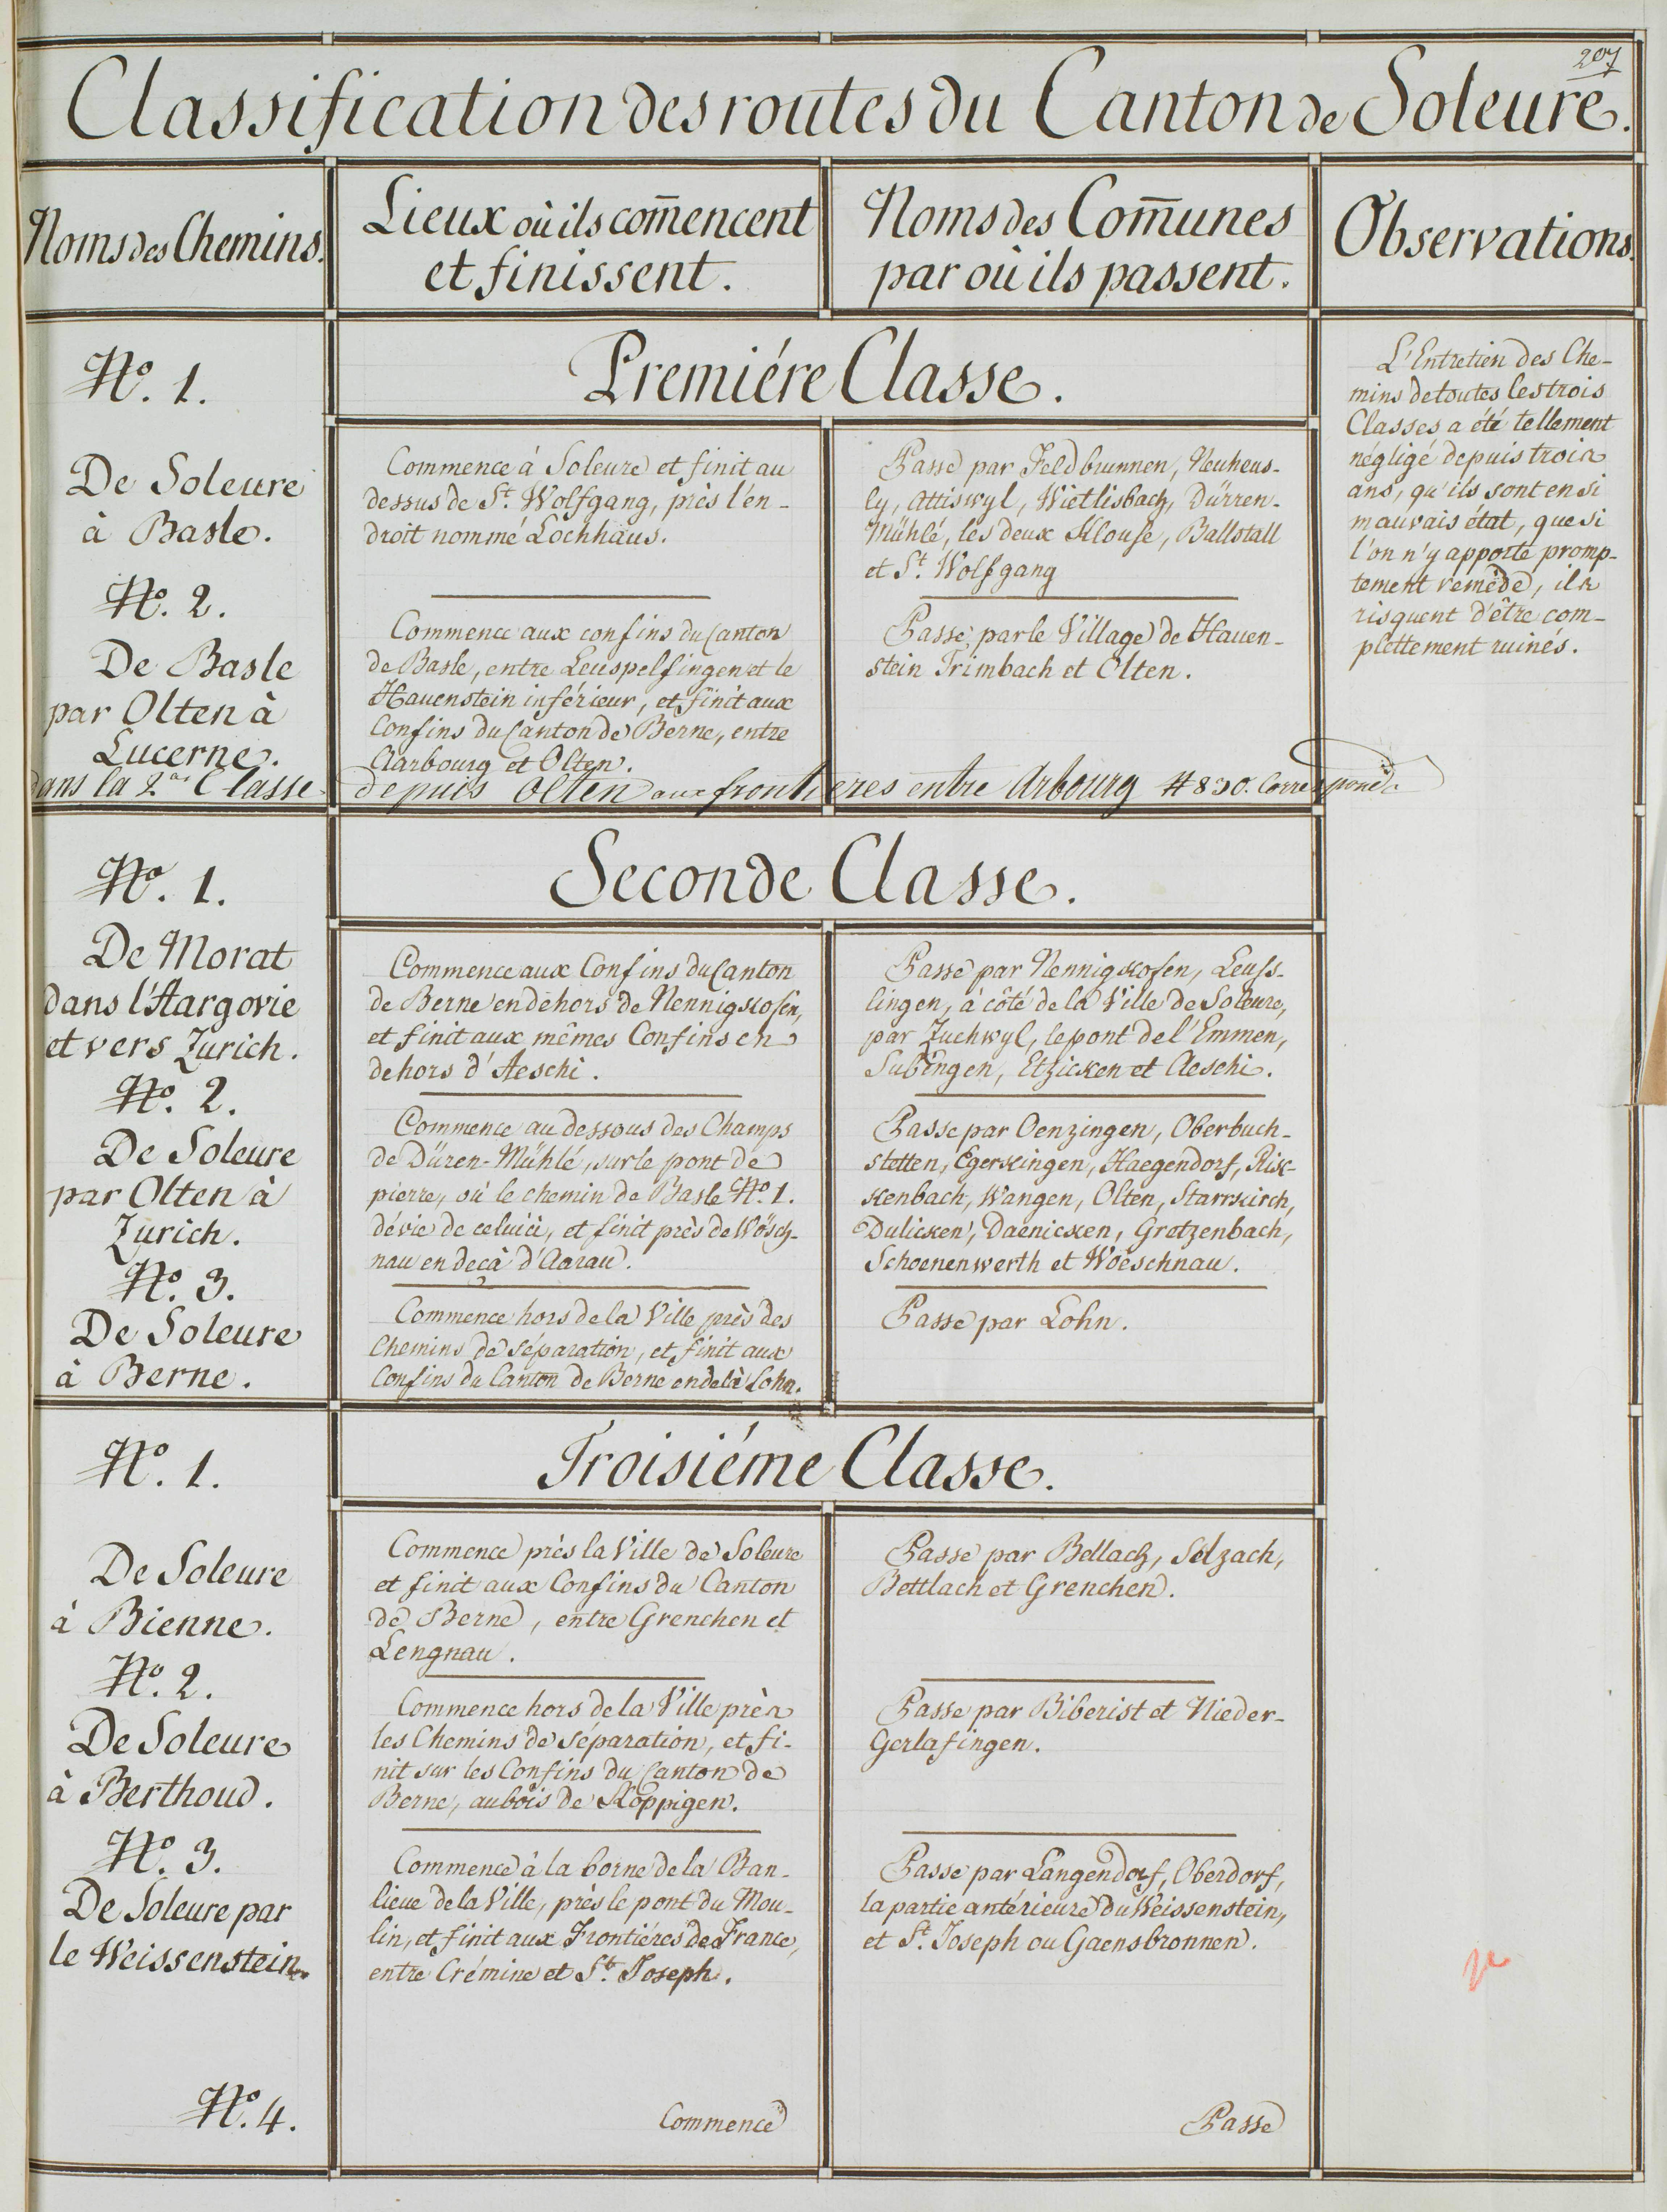 207
Classification des routes du Canton de Soleure.
Noms des Chemins.
Lieux où ils com̄encent
et finissent.
Noms des Com̄unes
par où ils passent.
Observations.
Premiére Classe.
L'Entretien des Che-
mins de toutes les trois
Classes a été tellement
négligé depuis trois
ans, qu'ils sont en si
mauvais état, que si
l'on n'y apporte promp-
tement remède, ils
risquent d'être com-
plettement ruinés.
No. 1.
De Soleure
à Basle.
Commence à Soleure et finit au
dessus de St. Wolfgang, près l'en-
droit nommé Lochhäus.
Passe par Feldbrunnen, Neuheus-
ly, Attiswyl, Wietlisbach, Dürren-
Mühlé, les deux Klouse, Ballstall
et St. Wolfgang
No. 2.
De Basle
par Olten à
Lucerne.
Commence aux confins du Canton
de Basle, entre Leuspelfingen et le
Hauenstein inférieur, et finit aux
Confins du Canton de Berne, entre
Aarbourg et Olten.
Passe par le Village de Hauen-
stein Trimbach et Olten.
dans la 2de Classe depuis Olten aux frontieres entre Arbourg # 830. Correspond.
Seconde Classe.
No. 1.
De Morat
dans l'Aargovie
et vers Zurich.
Commence aux Confins du Canton
de Berne en déhors de Nennigskofen,
et finit aux mêmes Confins en
dehors d'Aeschi.
Passe par Nennigskofen, Leuss-
lingen, à côté de la Ville de Soleure,
par Zuchwyl, le pont de l'Emmen,
Subingen, Etzicken et Aeschi.
No. 2.
De Soleure
par Olten à
Zurich.
Commence au dessous des Champs
de Düren-Mühlé, sur le pont de
pierre, où le chemin de Basle No. 1.
dévie de celuici, et finit près de Wösch-
nau en deçà d'Aarau.
Passe par Oenzingen, Oberbuch-
stetten, Egerkingen, Haegendorf, Rik-
kenbach, Wangen, Olten, Starrkirch,
Dulicken, Daenicken, Gretzenbach,
Schoenenwerth et Woeschnau.
No. 3.
De Soleure
à Berne.
Commence hors de la Ville près des
Chemins de séparation, et finit aux
Confins du Canton de Berne en delà Lohn.
Passe par Lohn.
Troisiéme Classe.
No. 1.
De Soleure
à Bienne.
Commence près la Ville de Soleure
et finit aux Confins du Canton
de Berne, entre Grenchen et
Lengnau.
Passe par Bellach, Selzach,
Bettlach et Grenchen.
No. 2.
De Soleure
à Berthoud.
Commence hors de la Ville près
les Chemins de séparation, et fi-
nit sur les Confins du Canton de
Berne, au bois de Koppigen.
Passe par Biberist et Nieder-
Gerlafingen.
No. 3.
De Soleure par
le Weissenstein.
Commence à la borne de la Ban-
lieue de la Ville, près le pont du Mou-
lin, et finit aux Frontiéres de France,
entre Crémine et St. Joseph.
Passe par Langendorf, Oberdorf,
la partie antérieure du Weissenstein,
et St. Joseph ou Gaensbronnen.
No. 4.
Commence
Passe